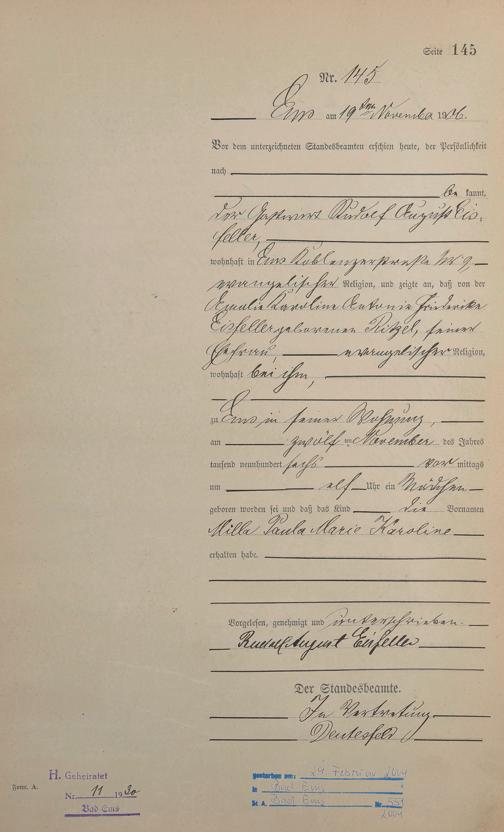 Seite 145
Nr. 145
Ems am 19ten November 1906.
Vor dem unterzeichneten Standesbeamten erschien heute, der Persönlichkeit
nach
be kannt,
der Gastwirt Rudolf August Eis-
feller,
wohnhaft in Ems Koblenzerstraße Nr 9,
evangelischer Religion, und zeigte an, daß von der
Amalie Karoline Antonie Friederike
Eisfeller geborenen Ritzel, seiner
Ehefrau, evangelischer Religion,
wohnhaft bei ihm,
zu Ems in seiner Wohnung,
am zwölf ten November des Jahres
tausend neunhundert sechs vor mittags
um elf Uhr ein Mädchen
geboren worden sei und daß das Kind die Vornamen
Milla Paula Marie Karoline
erhalten habe.
Vorgelesen, genehmigt und unterschrieben.
Rudolf August Eisfeller
Der Standesbeamte.
In Vertretung
Form. A.
H. Geheiratet
Nr. 11 1930
Bad Ems
gestorben am: 29. Februar 2004
in Bad Ems
St. A. Bad Ems Nr. 551
2004